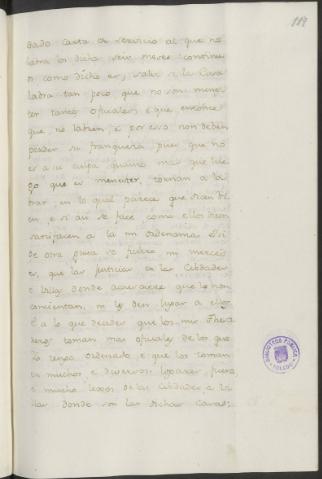 119
dado carta de servicio al que no
labra los dichos seis meses contino
s como dicho es, salir a la Casa
labra tan poco que no son menes
ter tantos oficiales e que entonce
que no labren, e por esso non deben
perder su franqueza, pues que no
es a su culpa quanto mas que lue
go que es menester, tornan a la
brar en lo qual parece que dicen bi
en e si asi se face como ellos dicen
satisfacen a la mi ordenanza. E si
de otra guisa se ficiere mi merced
es, que las justicias de las Cibdades
e Villas donde acaesciere que lo non
consientan, ni le den lugar a ello.
E a lo que decides que los mis Theso
reros toman mas oficiales de los que
Yo tengo ordenado e que los toman
en muchos e diversos lugares, fuera
e mucho lexos de las Cibdades, a la
do son las dichas Casas:
BIBLIOTECA PUBLICA
TOLEDO